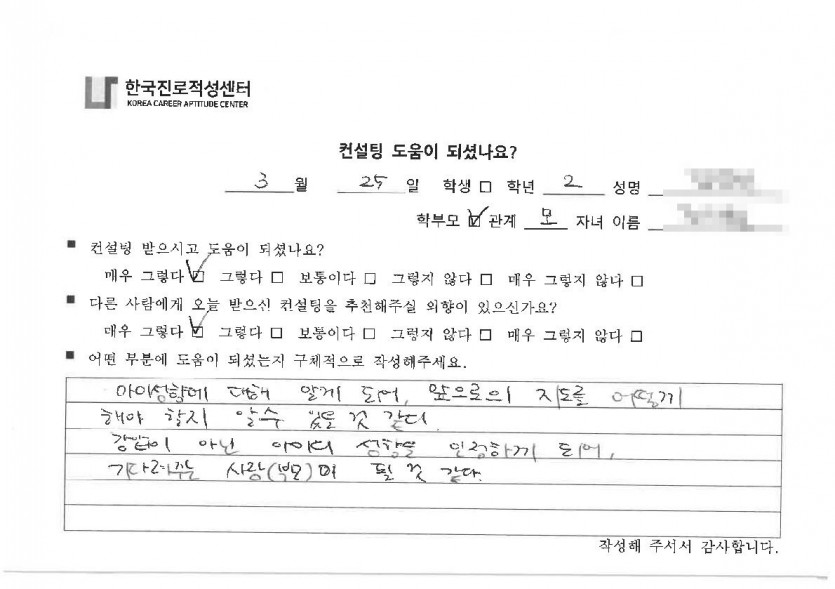 한국진로적성센터
KOREA CAREER APTITUDE CENTER
컨설팅 도움이 되셨나요?
3 월 25 일 학생 □ 학년 2 성명
학부모 ☑ 관계 모 자녀 이름
■ 컨설팅 받으시고 도움이 되셨나요?
매우 그렇다 ☑ 그렇다 □ 보통이다 □ 그렇지 않다 □ 매우 그렇지 않다 □
■ 다른 사람에게 오늘 받으신 컨설팅을 추천해주실 의향이 있으신가요?
매우 그렇다 ☑ 그렇다 □ 보통이다 □ 그렇지 않다 □ 매우 그렇지 않다 □
■ 어떤 부분에 도움이 되셨는지 구체적으로 작성해주세요.
아이성향에 대해 알게 되어, 앞으로의 지도를 어떻게
해야 할지 알수 있을 것 같다.
강압이 아닌 아이의 성향을 인정하게 되어,
기다려주는 사람(부모)이 될 것 같다.
작성해 주셔서 감사합니다.